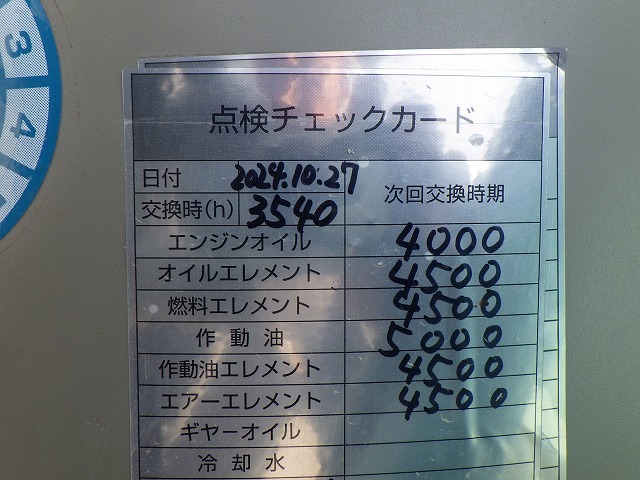 3
4
点検チェックカード
日付 2024.10.27
交換時(h) 3540 次回交換時期
エンジンオイル 4000
オイルエレメント 4500
燃料エレメント 4500
作動油 5000
作動油エレメント 4500
エアーエレメント 4500
ギヤーオイル
冷却水